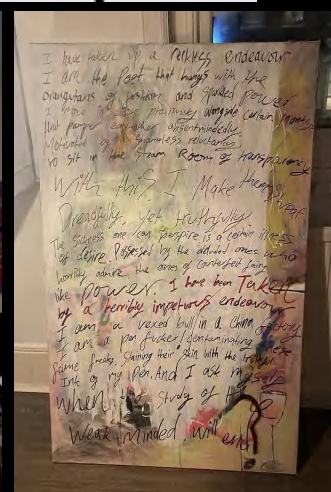 I have taken up a reckless endeavour
I am the Poet that hangs with the
orangutans of fashion and
I in close proximity alongside certain monkeys
that pamper each other absentmindedly
Motivated by a shameless reluctance
to sit in the Steam Room of transparency
With this I Make
Dreadfully, yet truthfully
The sickness one can perspire is a certain illness
of desire. Possessed by the deluded ones who
admire the ones of counterfeit fairy
like Power I have been Taken
by a terribly impetuous endeavour
I am a vexed bull in a china factory
I am a pen fucker contaminating these
fame freaks, staining their skin with the
Ink of my Pen. And I ask myself
When the study of the
Weak Minded, will end